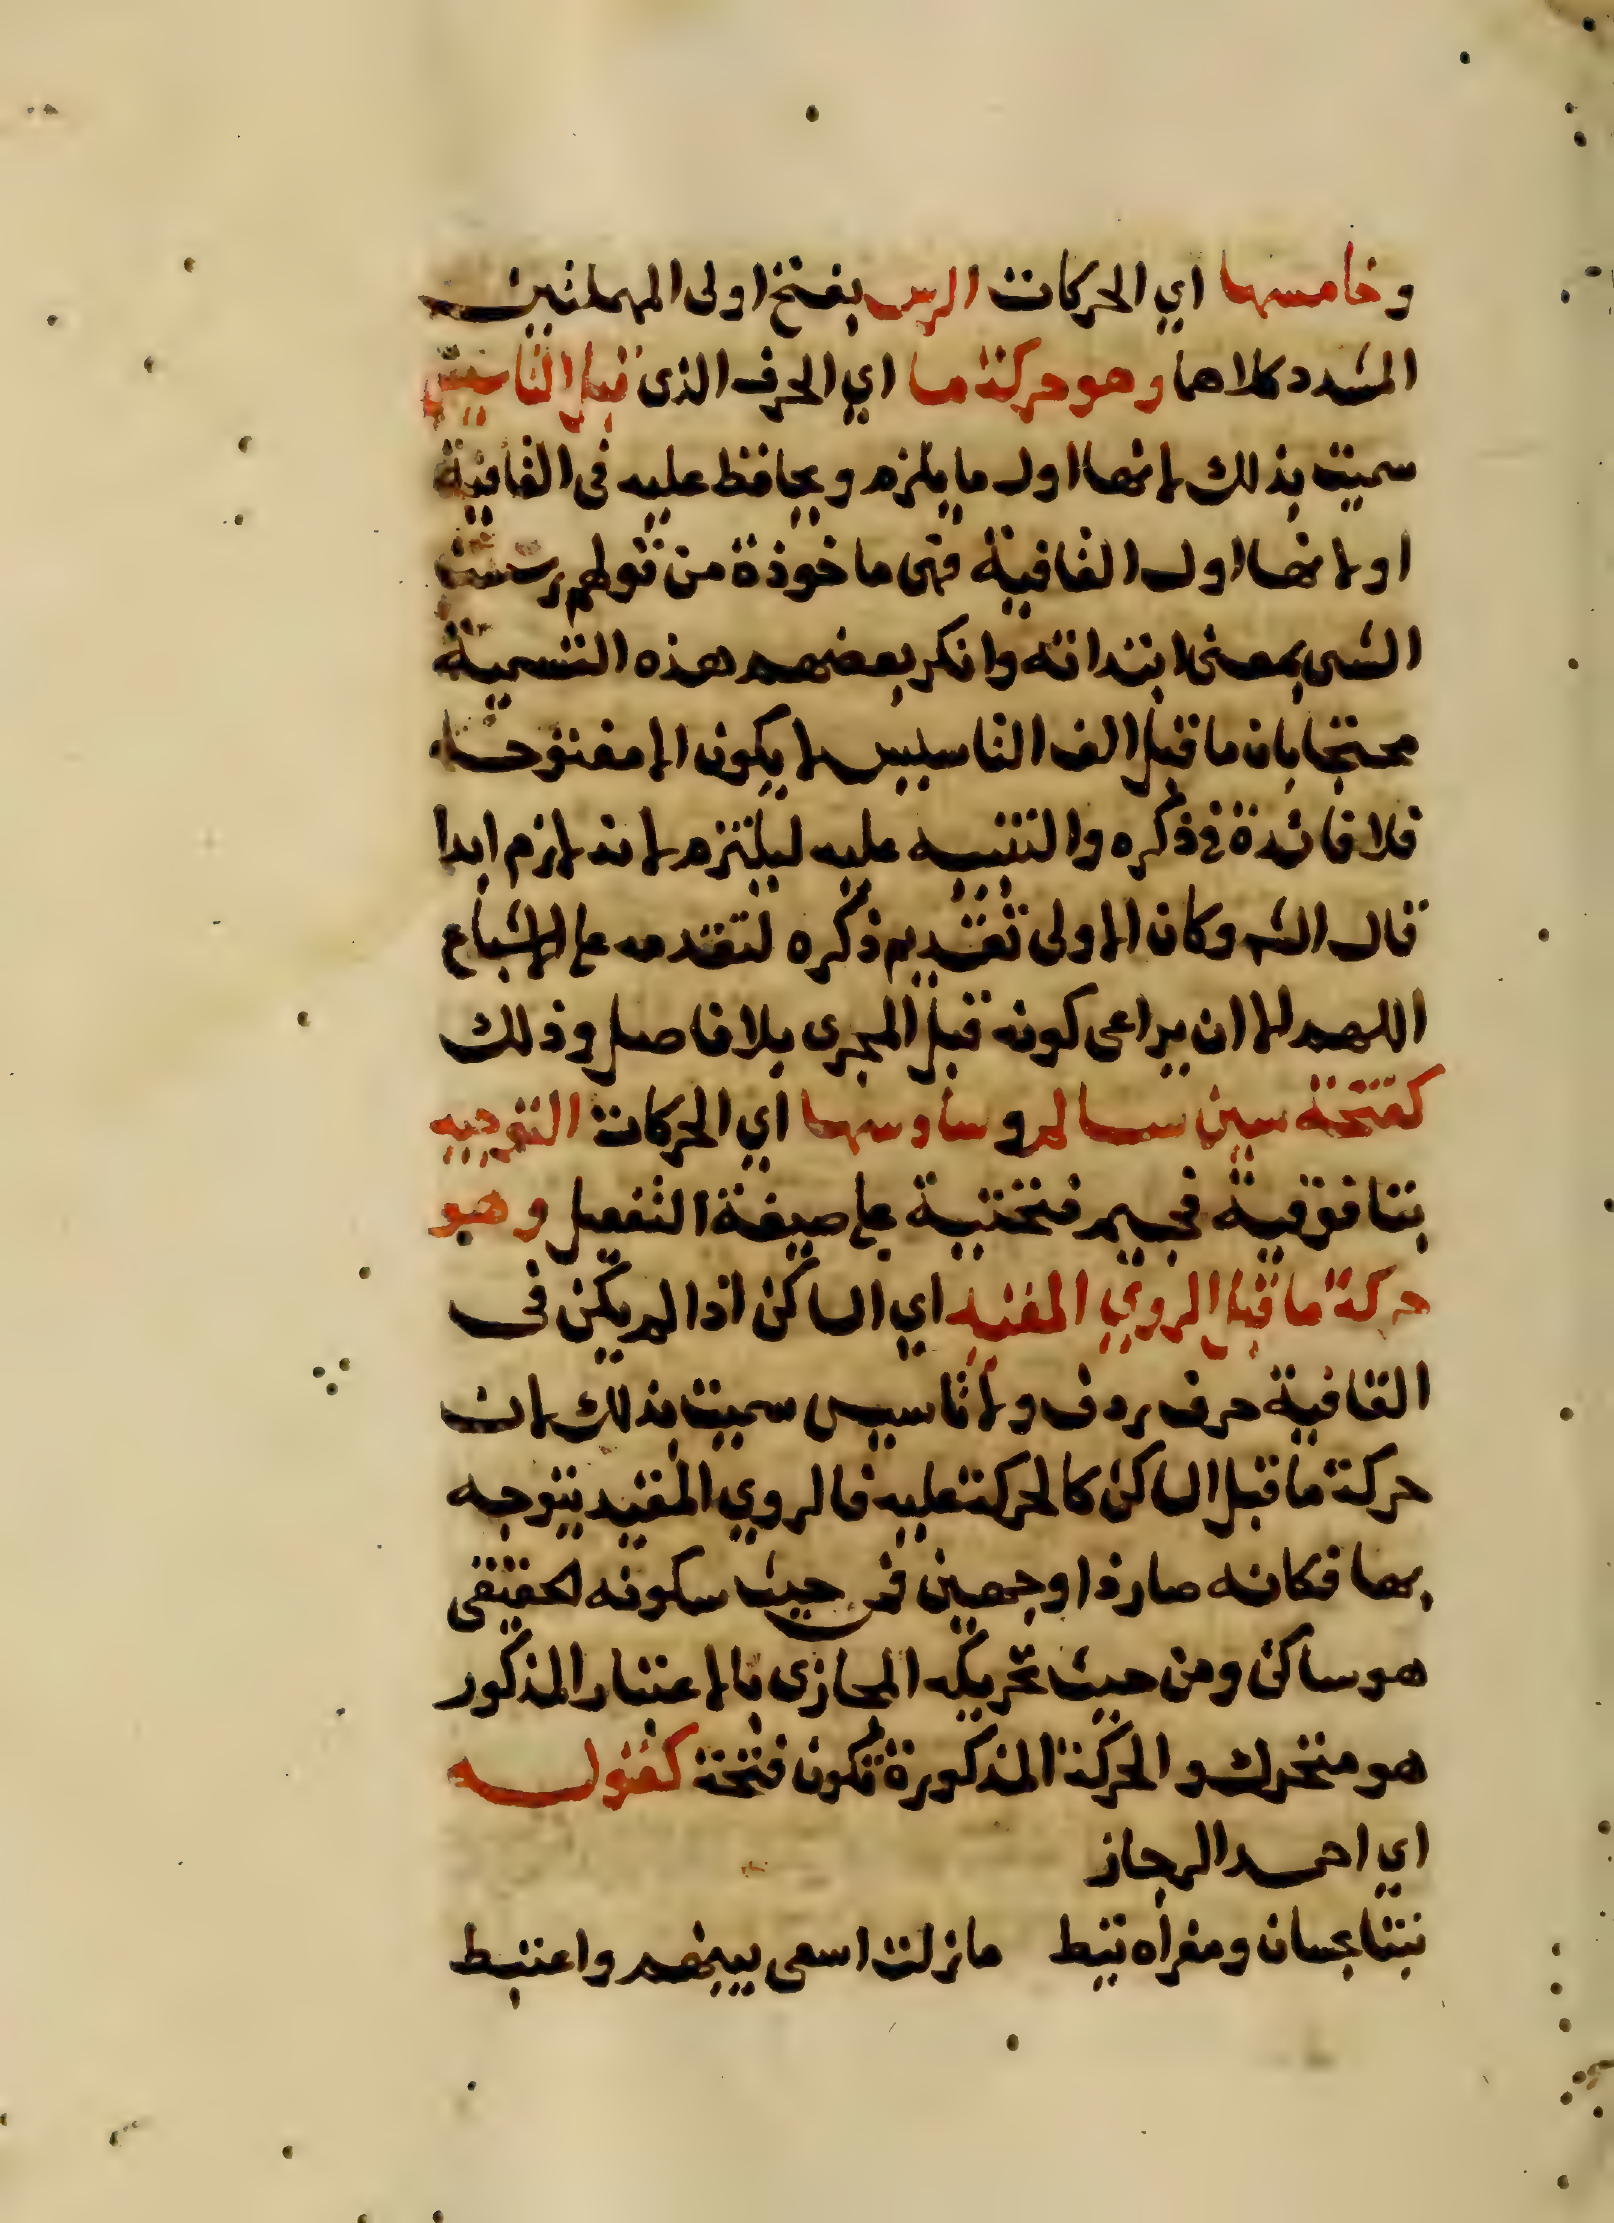 وخامسها اي الحركات الرس بفتح اولى المهملتين
المشدد كلاهما وهو حركة ما اي الحرف الذى قبل التاسيس
سميت بذلك لانها اول ما يلزم ويحافظ عليه فى القافية
او لانها اول القافية فهى ماخوذة من قولهم رسست
الشى بمعنى ابتداته وانكر بعضهم هذه التسمية
محتجا بان ما قبل الف التاسيس لا يكون الا مفتوحا
فلا فائدة فى ذكره والتنبيه عليه ليلتزم لانه لازم ابدا
قال الشم وكان الاولى تقديم ذكره لتقدمه على الاشباع
اللهم الا ان يراعى كونه قبل المجرى بلا فاصل وذلك
كفتحة سين سالم وسادسها اي الحركات التوجيه
بتا فوقية فجيم فتحتية على صيغة التفعيل وهو
حركة ما قبل الروي المقيد اي الساكن اذا لم يكن فى
القافية حرف ردف ولا تاسيس سميت بذلك لان
حركة ما قبل الساكن كالحركة عليه فالروي المقيد يتوجه
بها فكانه صار ذا وجهين فمن حيث سكونه الحقيقى
هو ساكن ومن حيث تحريكه المجازى بالاعتبار المذكور
هو متحرك والحركة المذكورة تكون فتحة كقوله
اي احمد الرجاز
بتنا بحسان ومعزاه تيط مازلت اسعى بينهم واعتبط